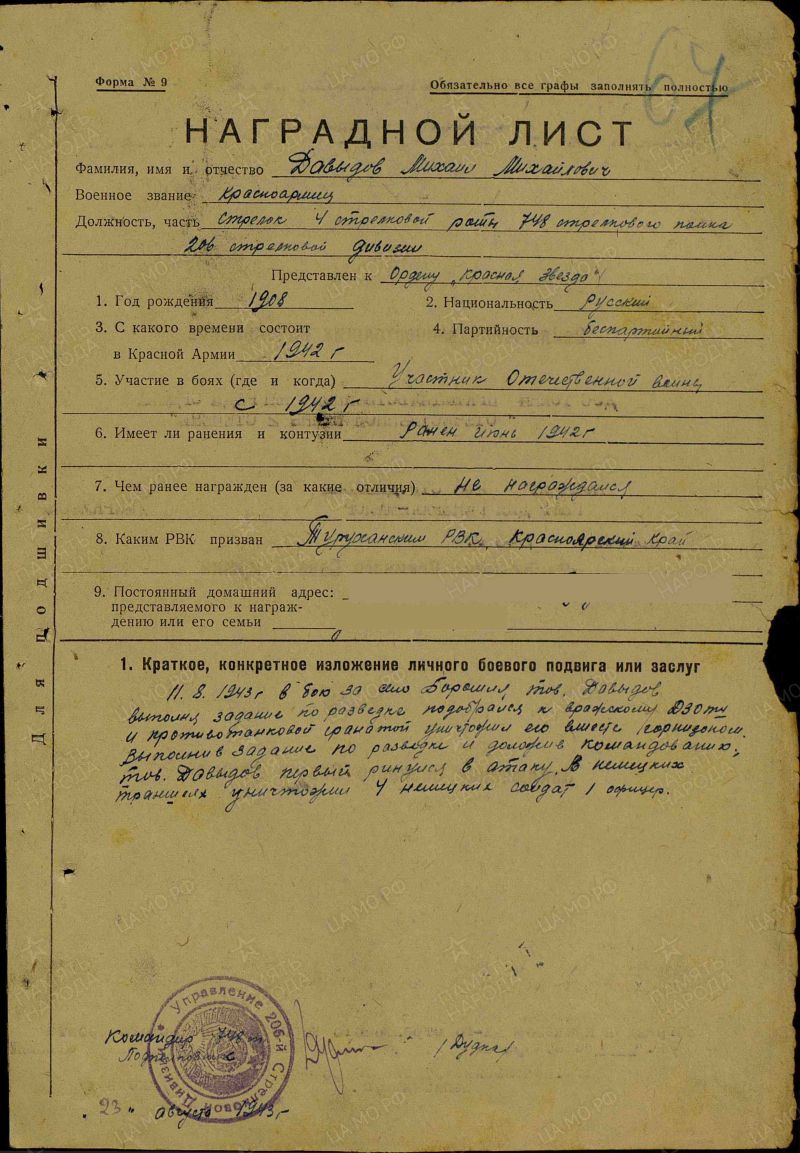 Форма № 9
Обязательно все графы заполнять полностью
67
НАГРАДНОЙ ЛИСТ
Фамилия, имя и отчество Давыдов Михаил Михайлович
Военное звание Красноармеец
Должность, часть Стрелок 4 стрелковой роты 748 стрелкового полка
206 стрелковой дивизии
Представлен к Ордену „Красная Звезда"
1. Год рождения 1908
2. Национальность Русский
3. С какого времени состоит
в Красной Армии 1942 г
4. Партийность беспартийный
5. Участие в боях (где и когда) Участник Отечественной войны
с 1942 г
6. Имеет ли ранения и контузии Ранен июнь 1942 г
7. Чем ранее награжден (за какие отличия) не награждался
8. Каким РВК призван Туруханским РВК, Красноярский край
9. Постоянный домашний адрес:
представляемого к награж-
дению или его семьи
Для подшивки
1. Краткое, конкретное изложение личного боевого подвига или заслуг
11.8.1943 г в бою за село тов. Давыдов
выполняя задание по разведке подобрался к вражескому ДЗОТу
и противотанковой гранатой уничтожил его вместе с гарнизоном.
Выполнив задание по разведке и доложив командованию,
тов. Давыдов первый ринулся в атаку. В немецких
траншеях уничтожил 4 немецких солдат 1 офицер.
Управление 206-й Стрелковой Дивизии
Командир 748 сп
Подполковник
/Дудка/
„23" августа 1943 г
ЦАМО.РФ